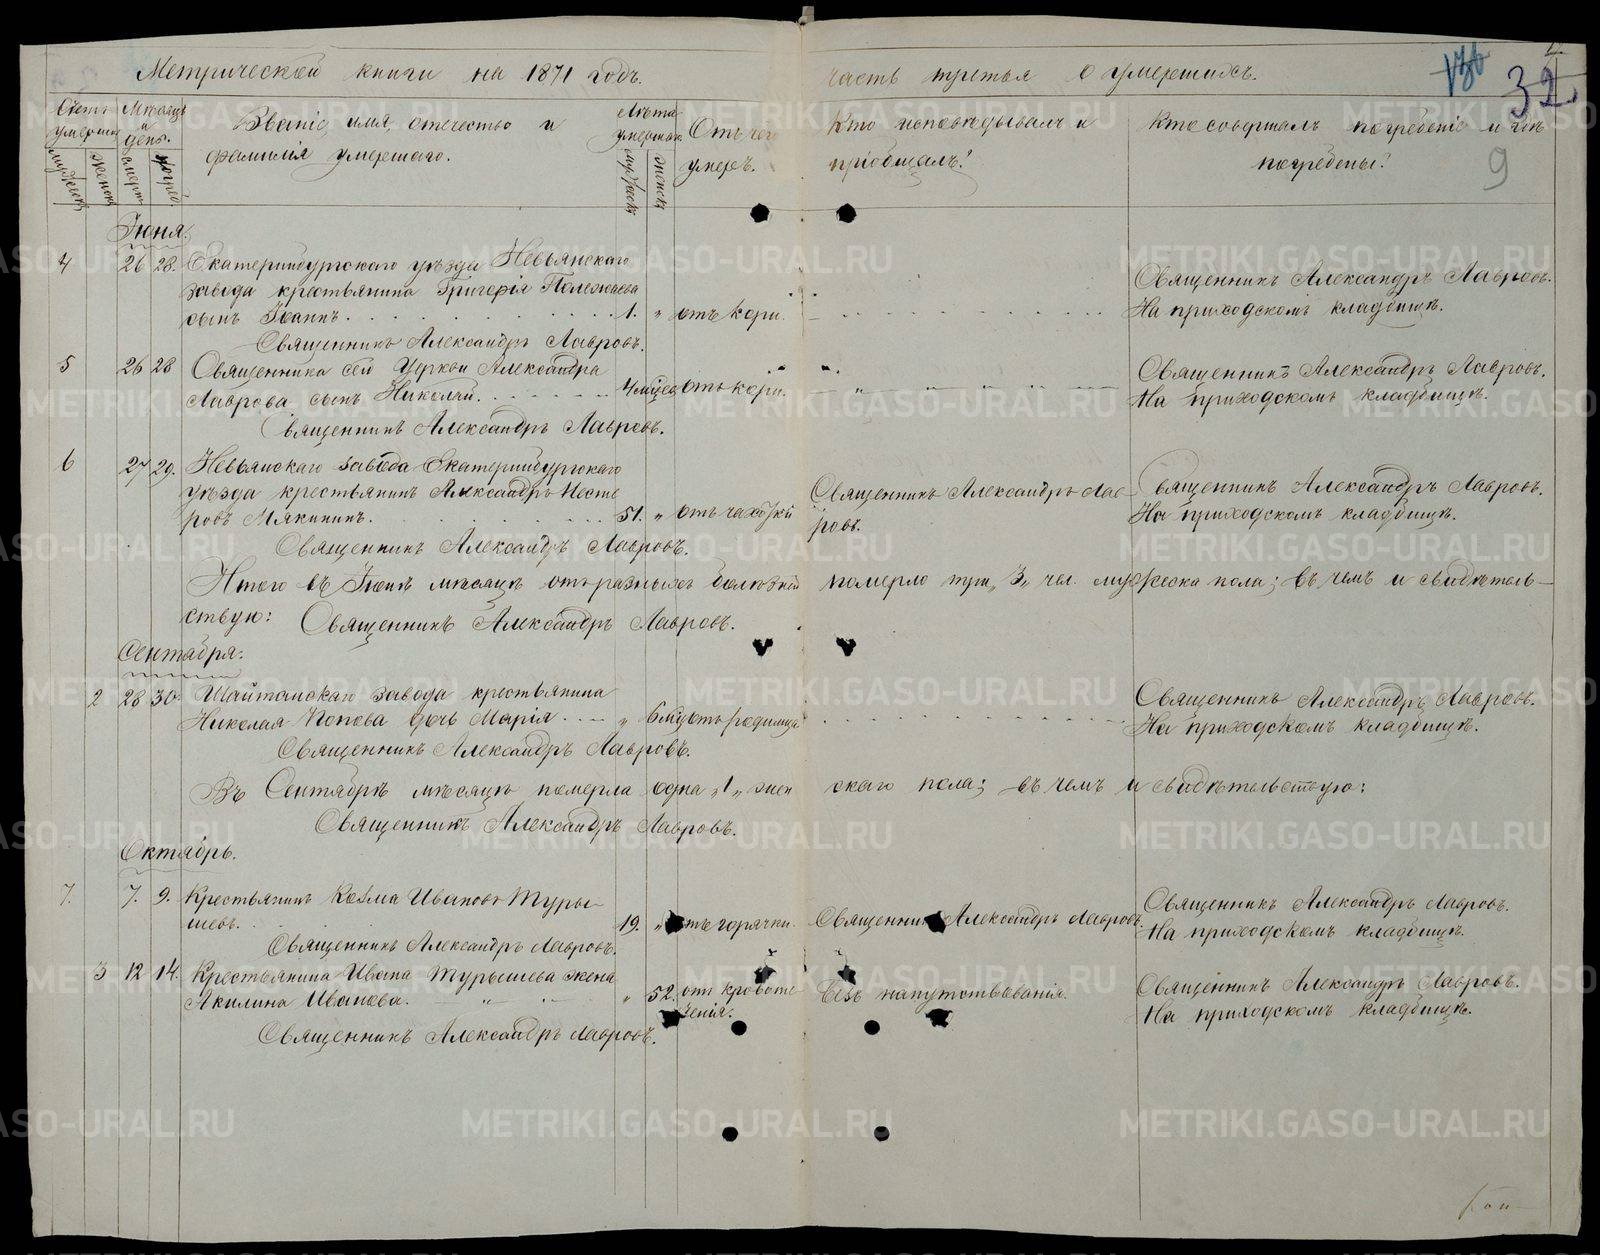 Метрической книги на 1871 годъ.
часть третья о умершихъ.
136
32
9
Счетъ умерших
мужеск
женск
Мѣсяцъ и день.
смерти
погреб.
Званіе, имя, отечество и
фамилія умершаго.
Лѣта умершаго
мужеск
женск
Отъ чего
умеръ.
Кто исповѣдывалъ и
пріобщалъ?
Кто совершалъ погребеніе и гдѣ
погребены?
Іюня.
4 26 28. Екатеринбургскаго уѣзда Невьянскаго
завода крестьянина Григорія Полежаева
сынъ Іоаннъ. 1. " отъ кори.
Священникъ Александръ Лавровъ.
На приходскомъ кладбищѣ.
Священникъ Александръ Лавровъ.
5 26 28 Священника сей церкви Александра
Лаврова сынъ Николай. 4 мѣсяц отъ кори.
Священникъ Александръ Лавровъ.
На приходскомъ кладбищѣ.
Священникъ Александръ Лавровъ.
6 27 29. Невьянскаго завода Екатеринбургскаго
уѣзда крестьянинъ Александръ Несте
ровъ Мякининъ. 51. " отъ чахотки
Священникъ Александръ Лав-
ровъ.
Священникъ Александръ Лавровъ.
На приходскомъ кладбищѣ.
Священникъ Александръ Лавровъ.
Итого въ Іюнѣ мѣсяцѣ отъ разныхъ болѣзней померло три "3" чел. мужеска пола; въ чемъ и свидѣтель-
ствую: Священникъ Александръ Лавровъ.
Сентября.
2 28 30. Шайтанскаго завода крестьянина
Николая Попова дочь Марія. " 6 мѣс отъ родимца
Священникъ Александръ Лавровъ.
На приходскомъ кладбищѣ.
Священникъ Александръ Лавровъ.
Въ Сентябрѣ мѣсяцѣ померла одна "1" жен скаго пола; въ чемъ и свидѣтельствую:
Священникъ Александръ Лавровъ.
Октябрь.
7. 7. 9. Крестьянинъ Козма Ивановъ Туры-
шевъ. 19. " отъ горячки.
Священникъ Александръ Лавровъ.
Священникъ Александръ Лавровъ.
На приходскомъ кладбищѣ.
Священникъ Александръ Лавровъ.
3 12 14. Крестьянина Ивана Турышева жена
Акилина Иванова. " 52. отъ кровоте
ченія.
Безъ напутствованія.
Священникъ Александръ Лавровъ.
На приходскомъ кладбищѣ.
Священникъ Александръ Лавровъ.
METRIKI.GASO-URAL.RU